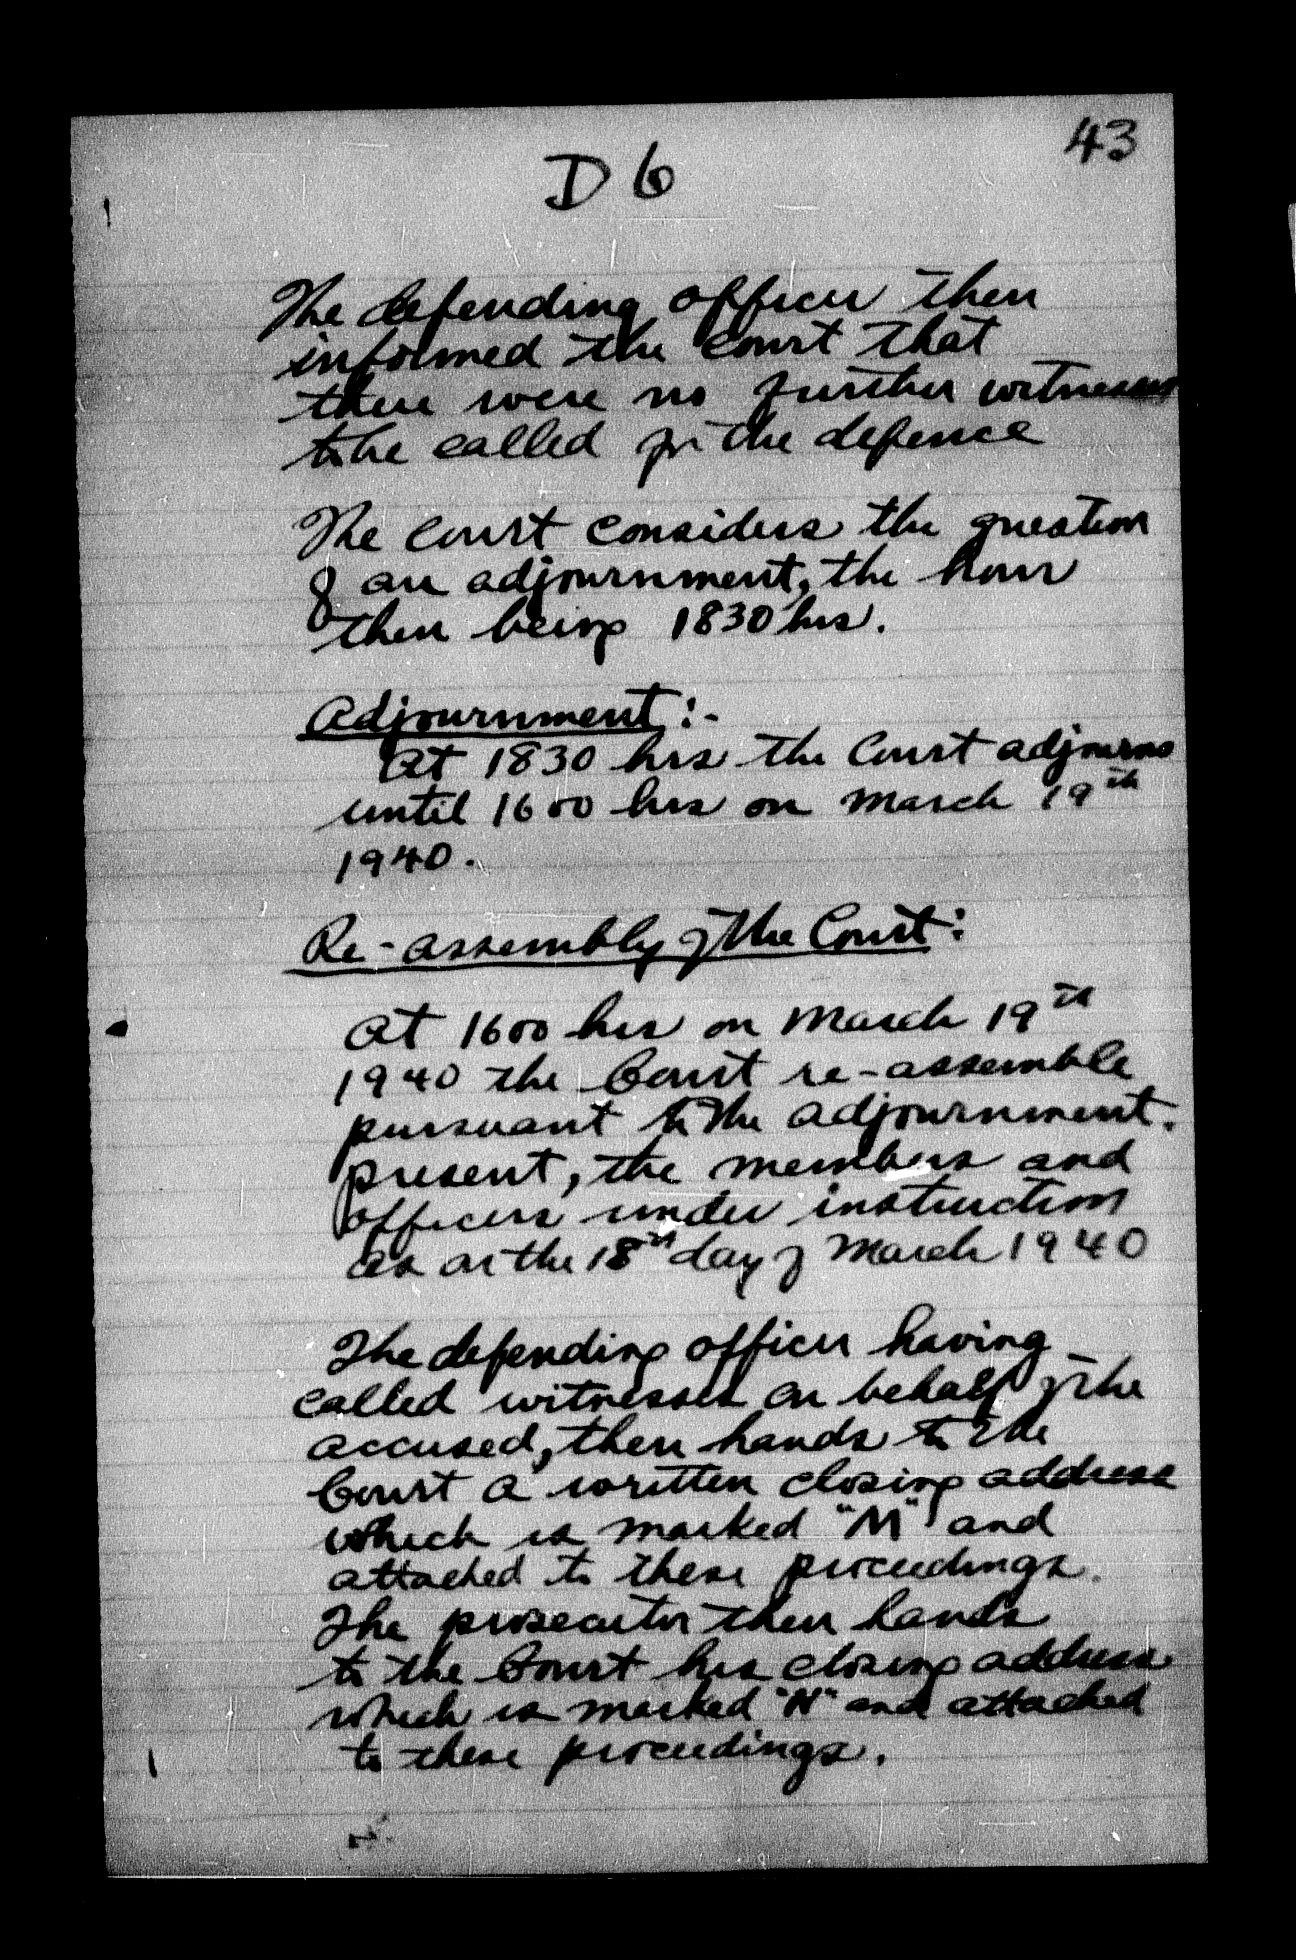 43
D 6
The defending officer then
informed the court that
there were no further witnesses
to be called for the defence
The Court considers the question
of an adjournment, the hour
then being 1830 hrs.
Adjournment:-
At 1830 hrs the Court adjourns
until 1600 hrs on March 19th
1940.
Re-assembly of the Court:
At 1600 hrs on March 19th
1940 the Court re-assemble
pursuant to the adjournment.
present, the members and
officers under instruction
as on the 18th day of March 1940
The defending officer having
called witnesses on behalf of the
accused, then hands to the
Court a written closing address
which is marked "M" and
attached to these proceedings.
The prosecutor then hands
to the Court his closing address
which is marked "N" and attached
to these proceedings.